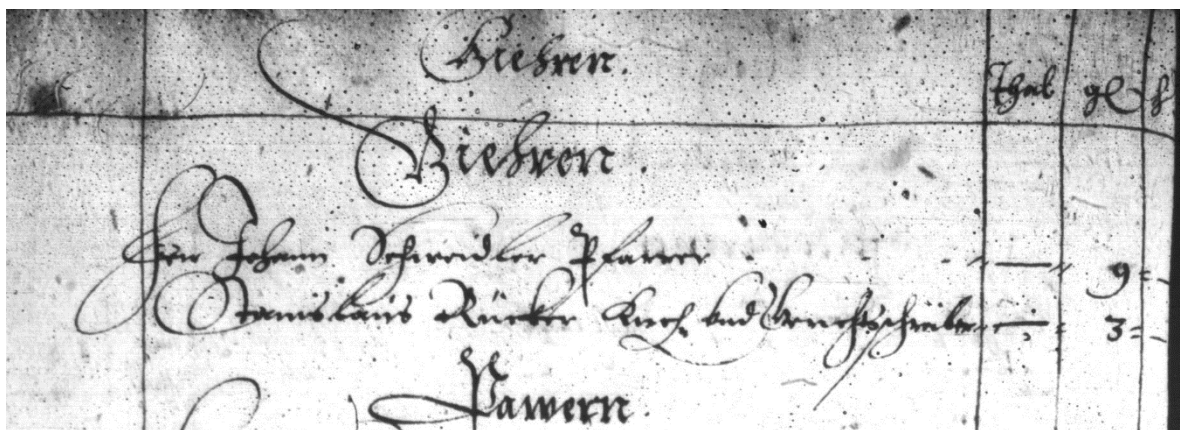 Giehren. Thal gl h
Giehren.
Herr Johann Schwidler Pfarrer - 9 -
Stanislaus Rücker Kirch vnd Gerichtschreiber - 3 -
Pawern